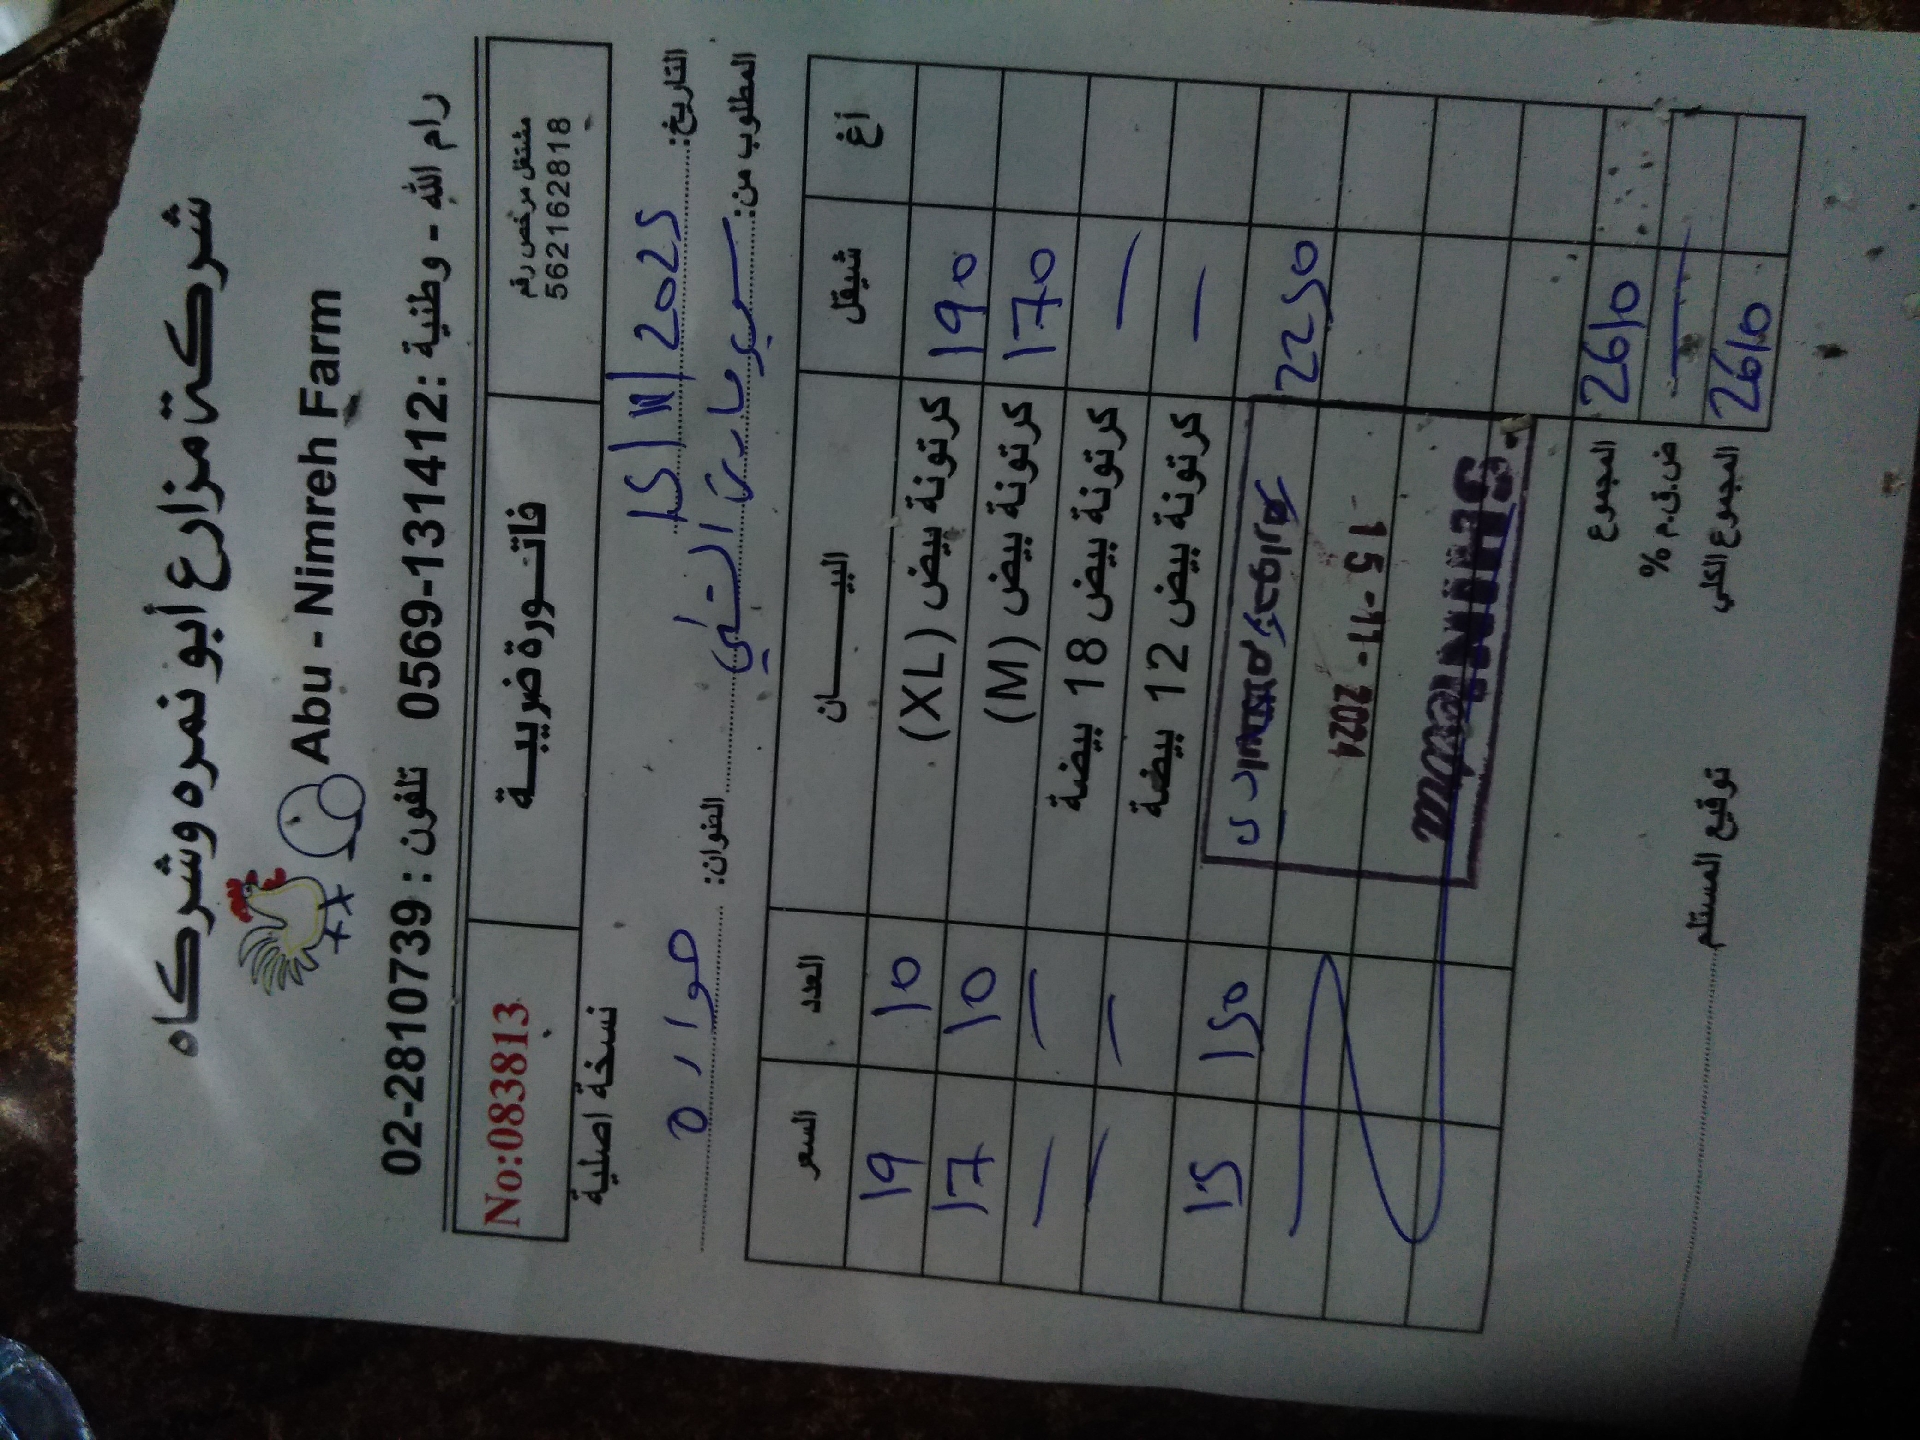 شركة مزارع أبو نمره وشركاه
Abu - Nimreh Farm
رام الله - وطنية : 0569-131412 تلفون : 02-2810739
مشتغل مرخص رقم
562162818
فاتـورة ضريبـة
No:083813
نسخة اصلية
التاريخ: 15/11/2025
المطلوب من: سوبر ماركت العنوان: حواره
أغ شيقل البيـــــان العدد السعر
190 كرتونة بيض (XL) 10 19
170 كرتونة بيض (M) 10 17
— كرتونة بيض 18 بيضة — —
— كرتونة بيض 12 بيضة — —
2250 150 15
15-11-2024
المجموع 2610
ض.ق.م % —
المجموع الكلي 2610
توقيع المستلم